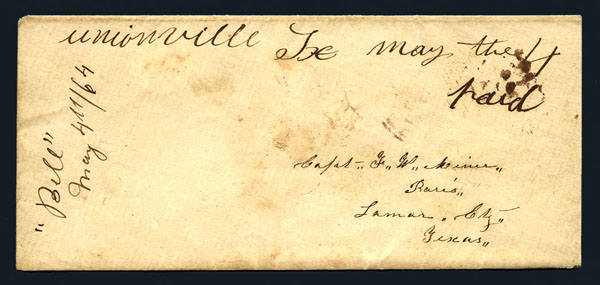 unionville Tx may the 4
paid
"Bill"
May 4th/64
Capt. F,, W,, Miner,,
Paris,,
Lamar,, Cty,,
Texas,,